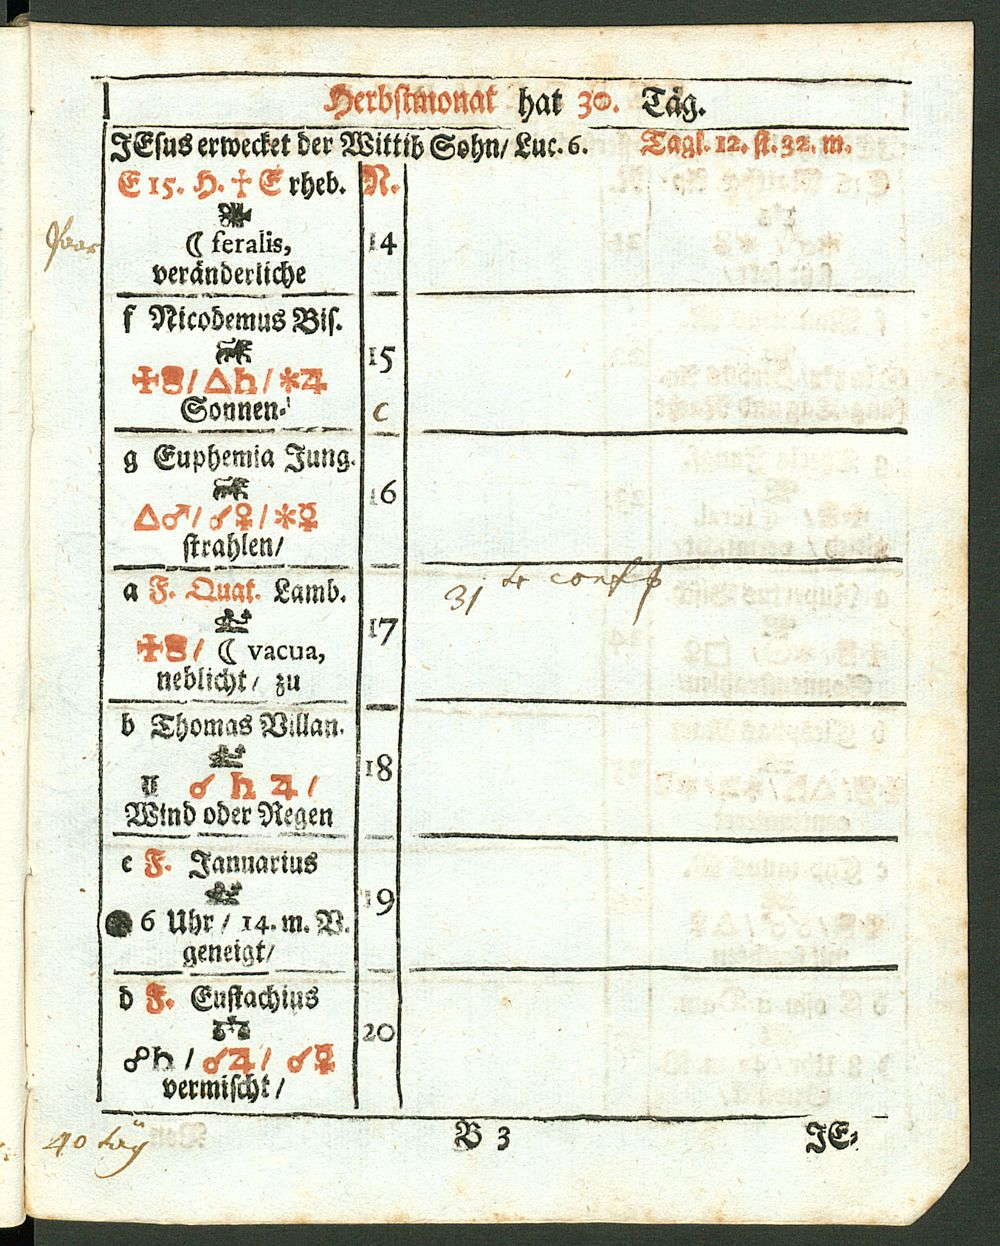 Herbstmonat hat 30. Täg.
JEsus erwecket der Wittib Sohn/ Luc. 6. Tagl. 12. st. 32. m.
E 15. H. ♱ Erheb. N.
☾ feralis, 14
veränderliche
f Nicodemus Bis.
15
△♄/ ⚹♃
Sonnen-
C
g Euphemia Jung.
16
△♂/ ☌♀/ ⚹☿
strahlen/
31
a F. Quat. Lamb.
17
☾ vacua,
neblicht/ zu
b Thomas Villan.
18
☌ ♄ ♃ /
Wind oder Regen
c F. Januarius
19
● 6 Uhr/ 14. m. V.
geneigt/
d F. Eustachius
20
☍♄ / ☌♃/ ☌☿
vermischt/
40 täg
B 3 JE-